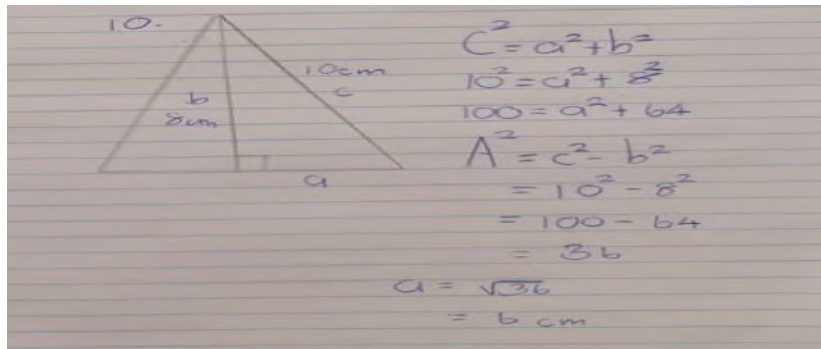 10.
10cm
c
b
8cm
a
C² = a² + b²
10² = a² + 8²
100 = a² + 64
A² = c² - b²
= 10² - 8²
= 100 - 64
= 36
a = √36
= 6 cm